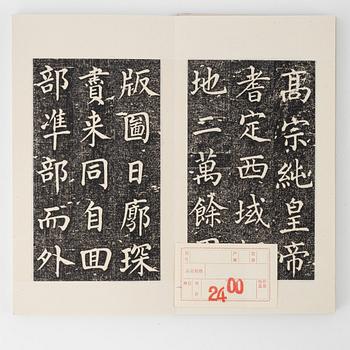 高宗純皇帝
耆定西域
地二萬餘
版圖日廓琛
賮来同自回
部準部而外
2400